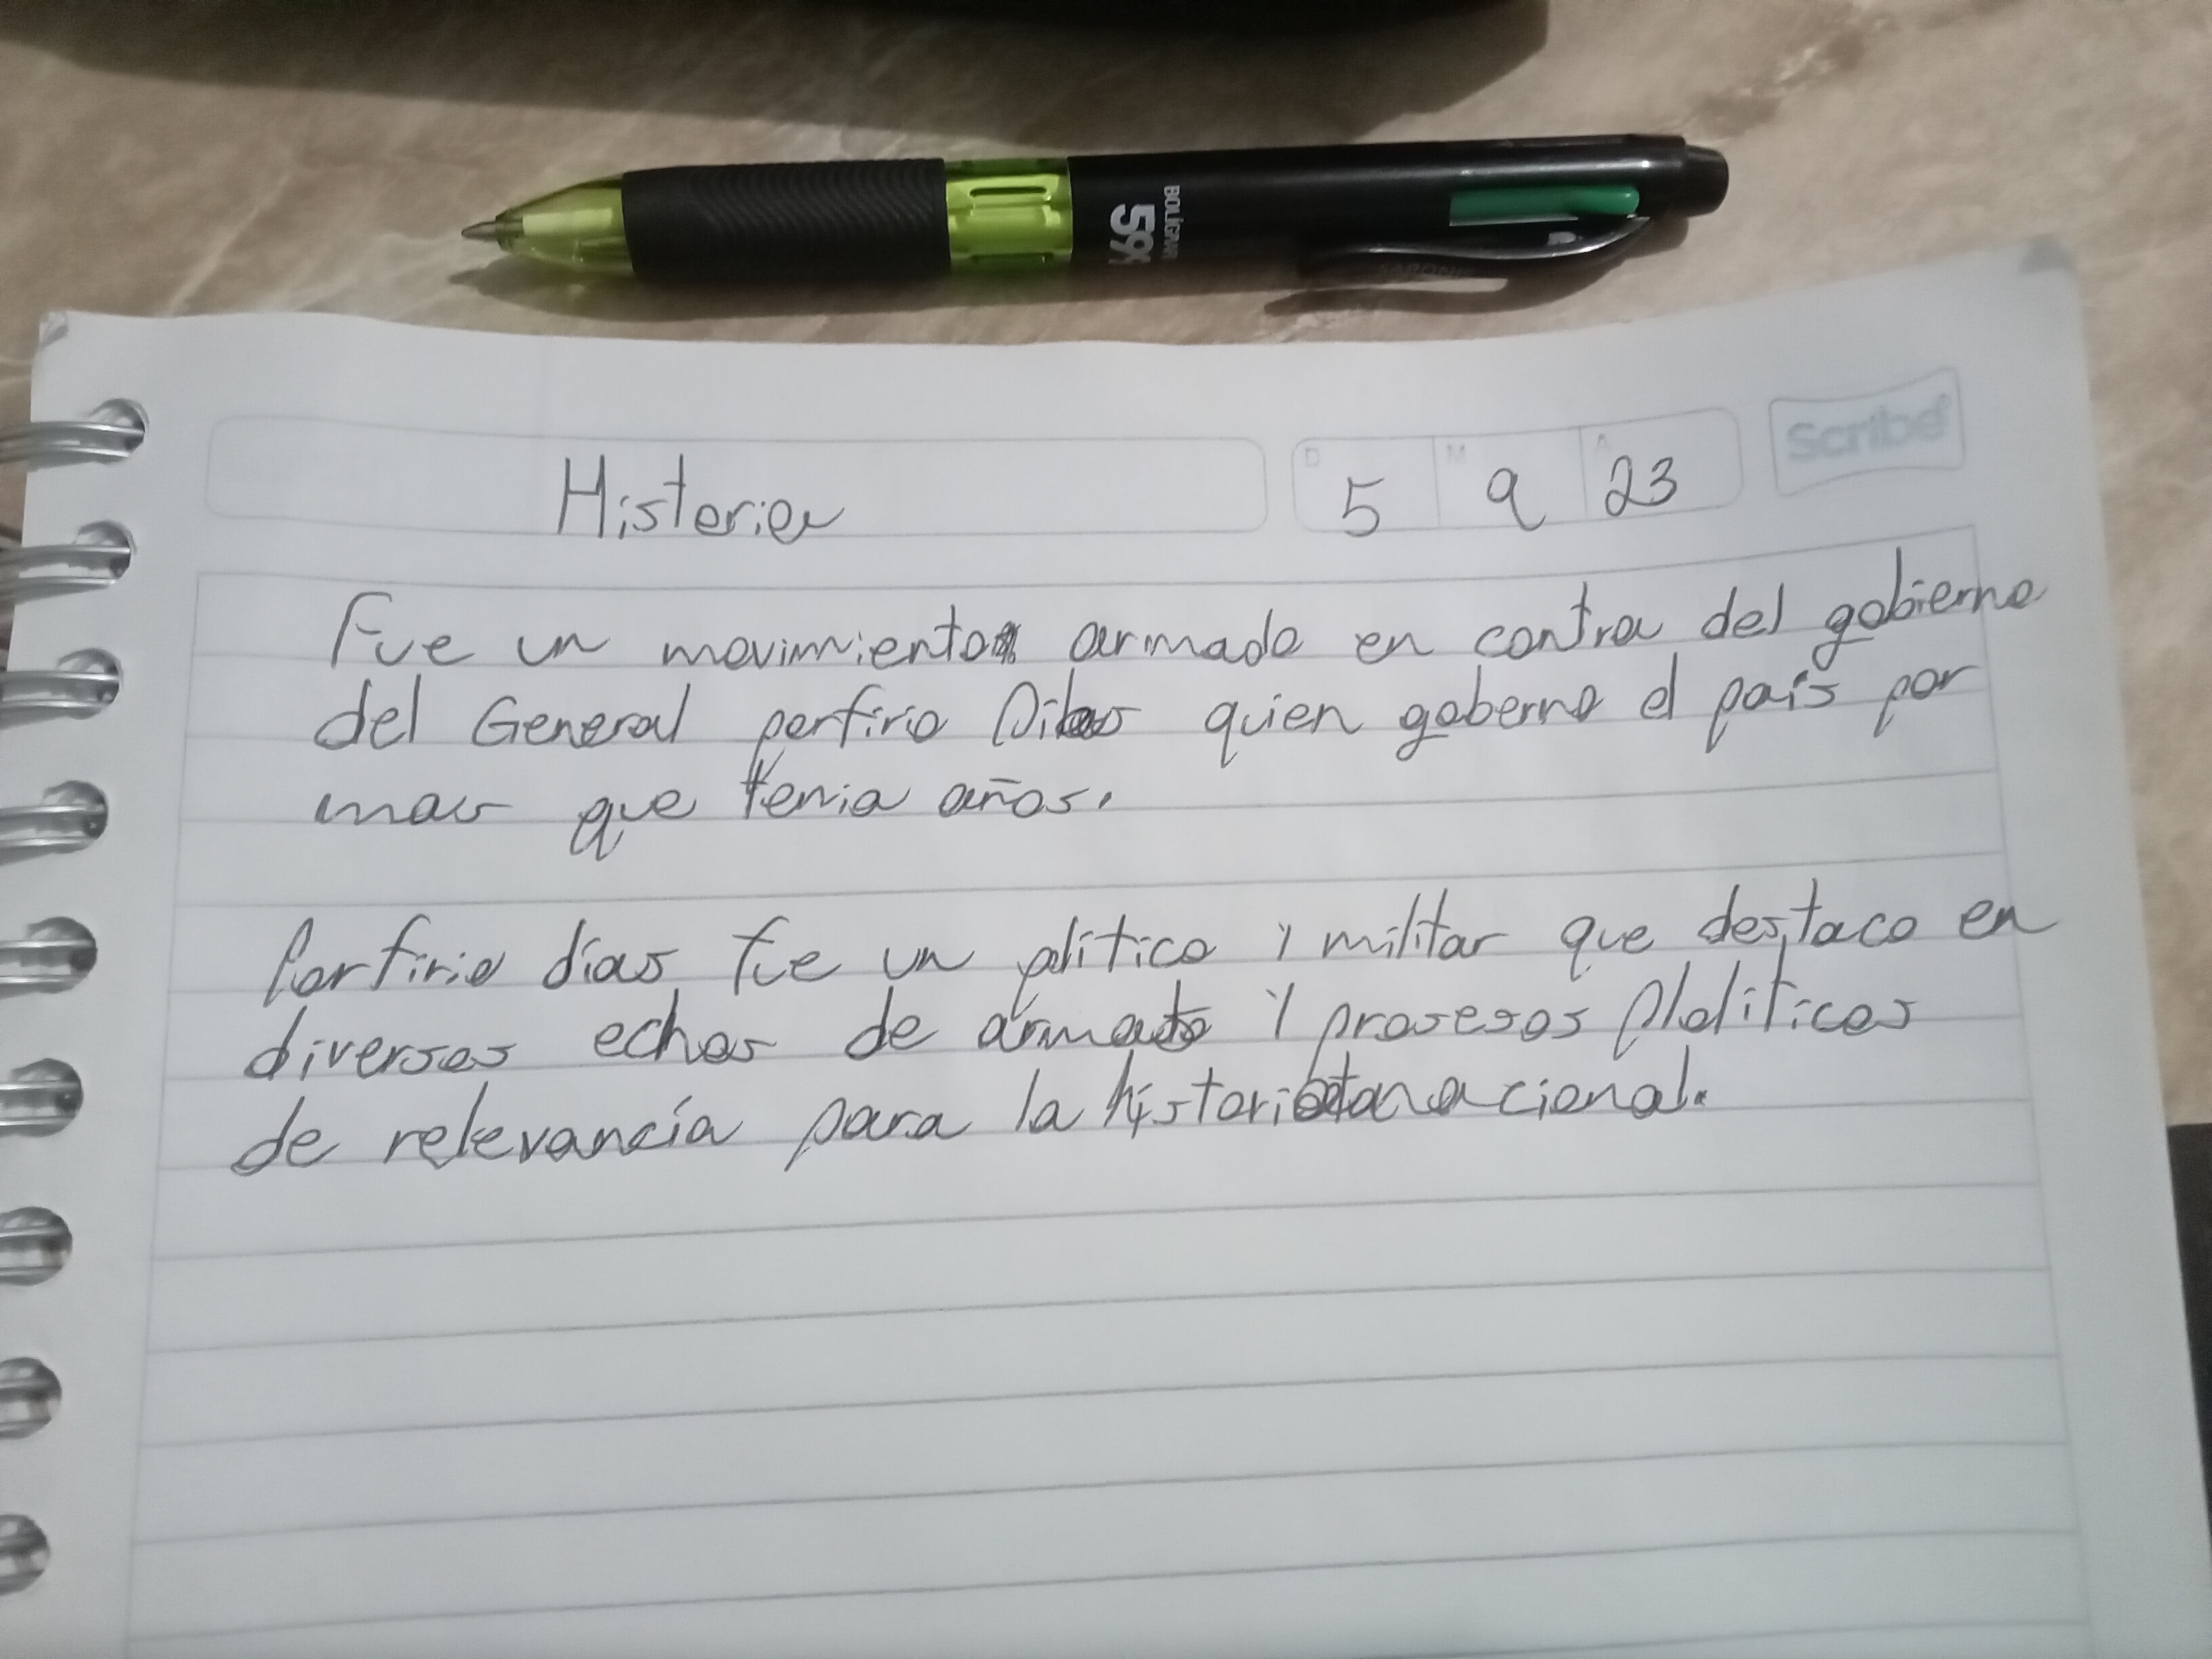 BOLÍGRAF
599
Scribe
Historia
D 5 M 9 A 23
Fue un movimiento armado en contra del gobierno
del General porfirio Dias quien goberno el país por
mas que tenia años.
Porfirio días fue un plitico y militar que destaco en
diversos echos de armas y prosesos plolíticos
de relevancía para la historia nacional.